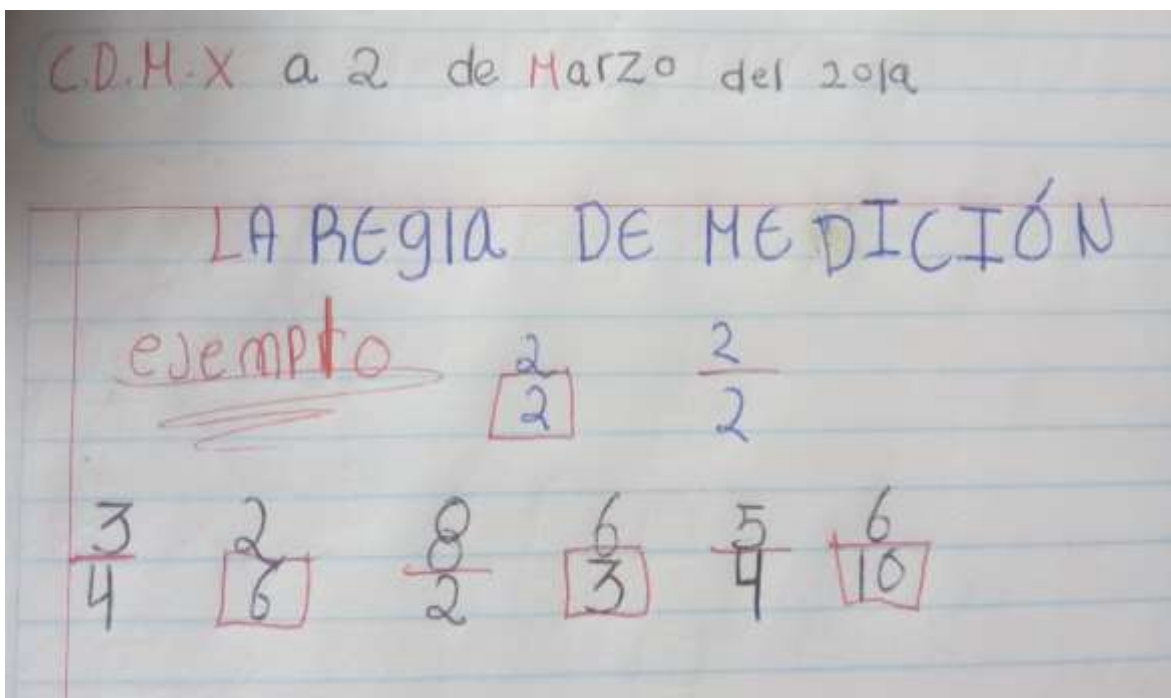 C.D.M.X a 2 de Marzo del 2019
LA REglA DE MEDICIÓN
ejemplo 2/2 2/2
3/4 2/6 8/2 6/3 5/4 6/10